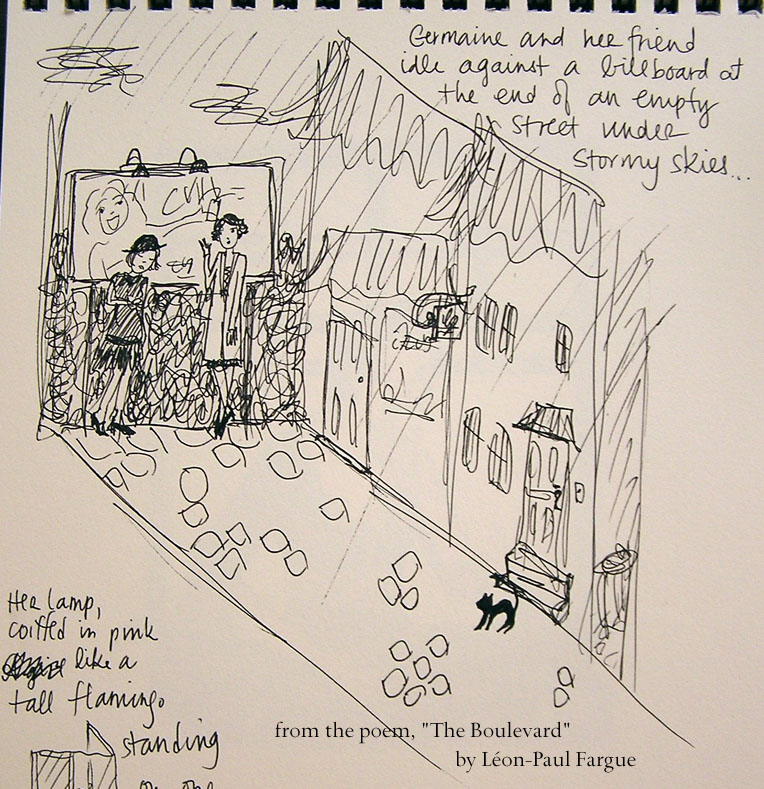 Germaine and her friend
idle against a billboard at
the end of an empty
street under
stormy skies...
Her lamp,
coiffed in pink
like a
tall flamingo
standing
on one
from the poem, "The Boulevard"
by Léon-Paul Fargue